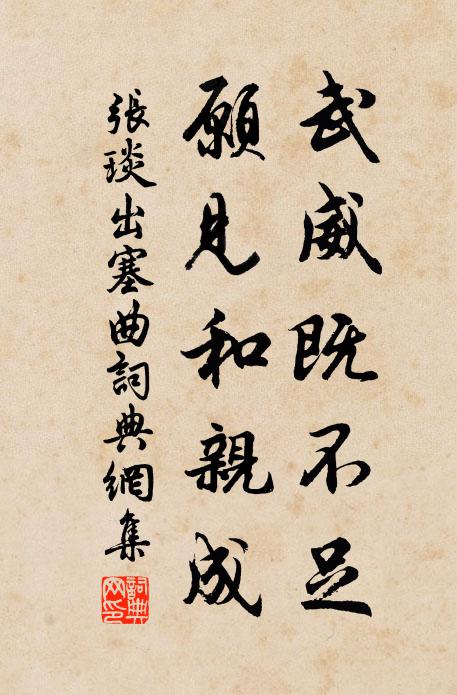 武威既不足
願見和親成
張琰出塞曲詞典網集
詞典網印